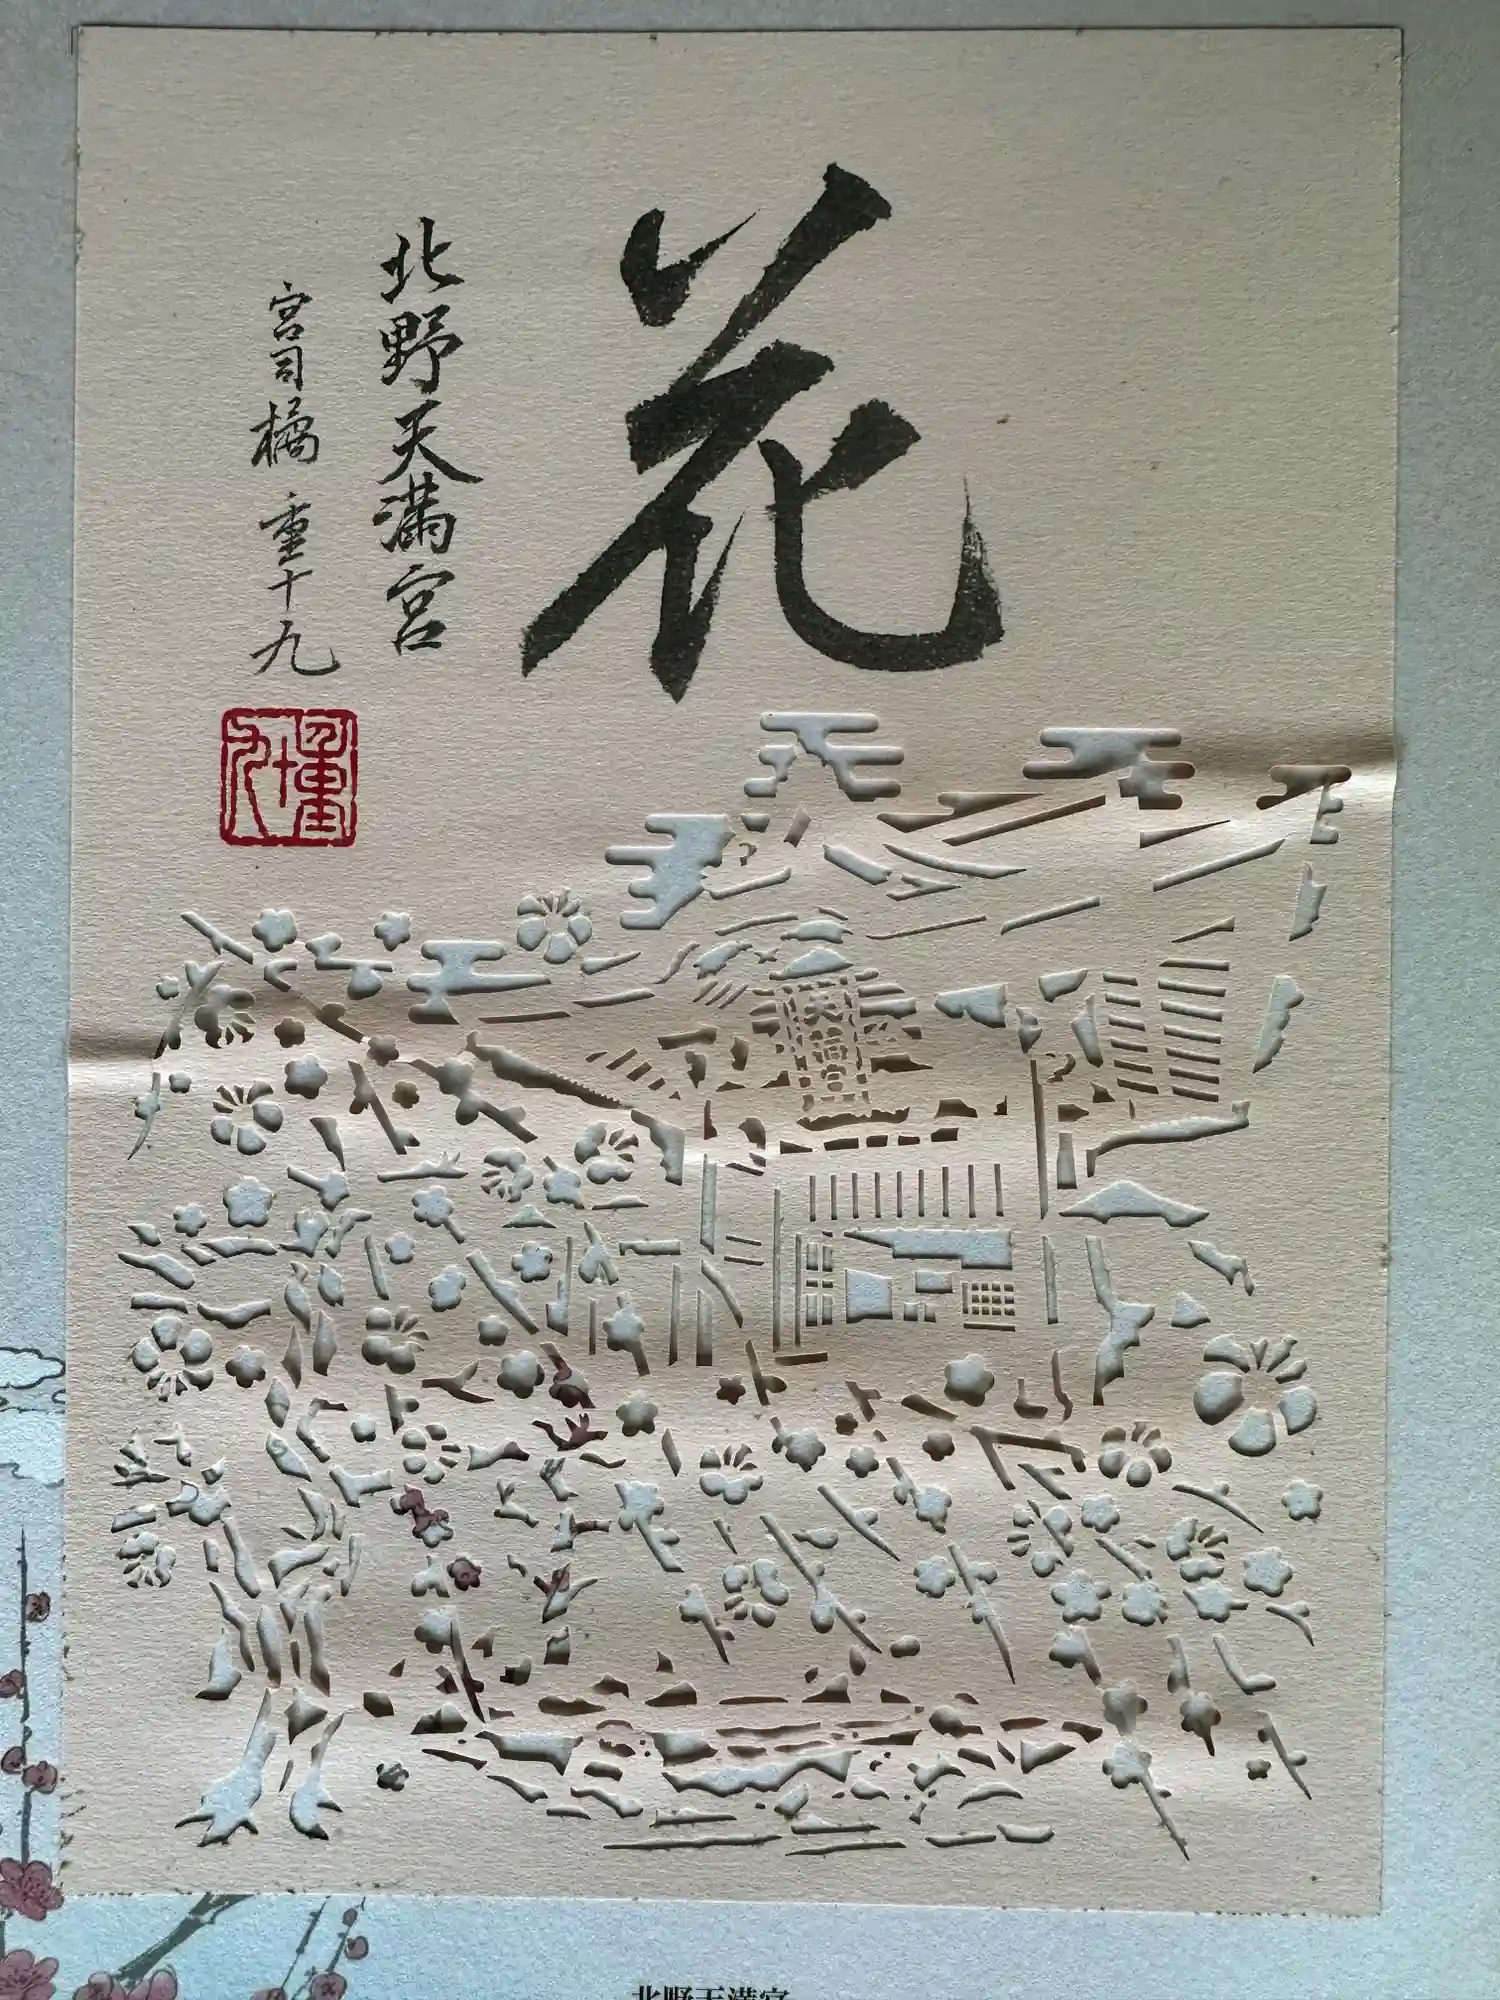 花
北野天満宮
宮司 橘 重十九
重十九
天満宮
北野天満宮